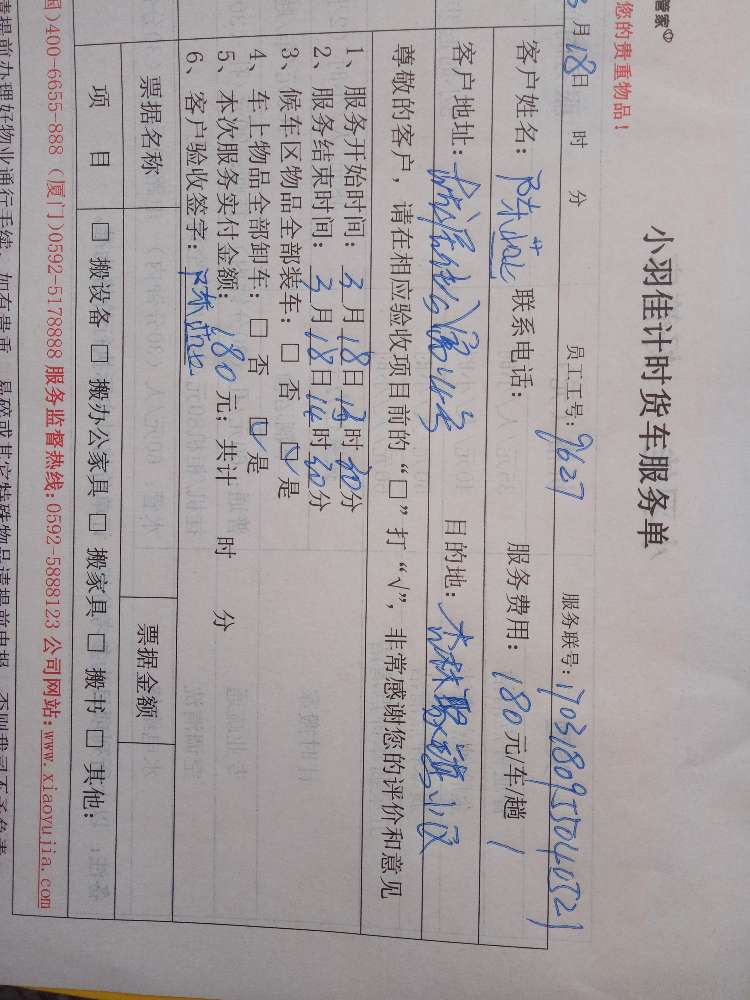 管家
您的贵重物品！
小羽佳计时货车服务单
3月18日 时 分 员工工号：9627 服务联号：1703180955040521
客户姓名： 联系电话： 服务费用：180元/车/趟
客户地址： 目的地：
尊敬的客户，请在相应验收项目前的“□”打“√”，非常感谢您的评价和意见
1、服务开始时间：3月18日13时30分
2、服务结束时间：3月18日14时30分
3、候车区物品全部装车：□ 否 ☑ 是
4、车上物品全部卸车：□ 否 ☑ 是
5、本次服务实付金额：180元；共计 时 分
6、客户验收签字：
票据名称 票据金额
项 目 □ 搬设备 □ 搬办公家具 □ 搬家具 □ 搬书 □ 其他：
国)400-6655-888 (厦门)0592-5178888 服务监督热线:0592-5888123 公司网站:www.xiaoyujia.com
请提前办理好物业通行手续，如有贵重、易碎或其它特殊物品请提前申报，否则我司不予负责